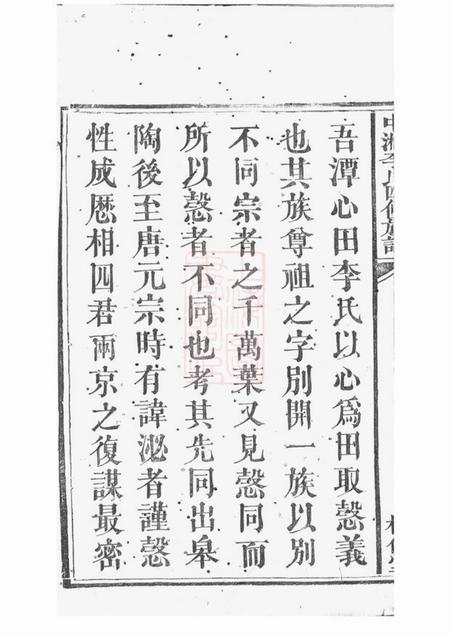 中湘李氏四修族譜
吾潭心田李氏以心爲田取慤義
也其族尊祖之字別開一族以別
不同宗者之千萬葉又見慤同而
所以慤者不同也考其先同出皋
陶後至唐元宗時有諱泌者謹慤
性成歷相四君兩京之復謀最密